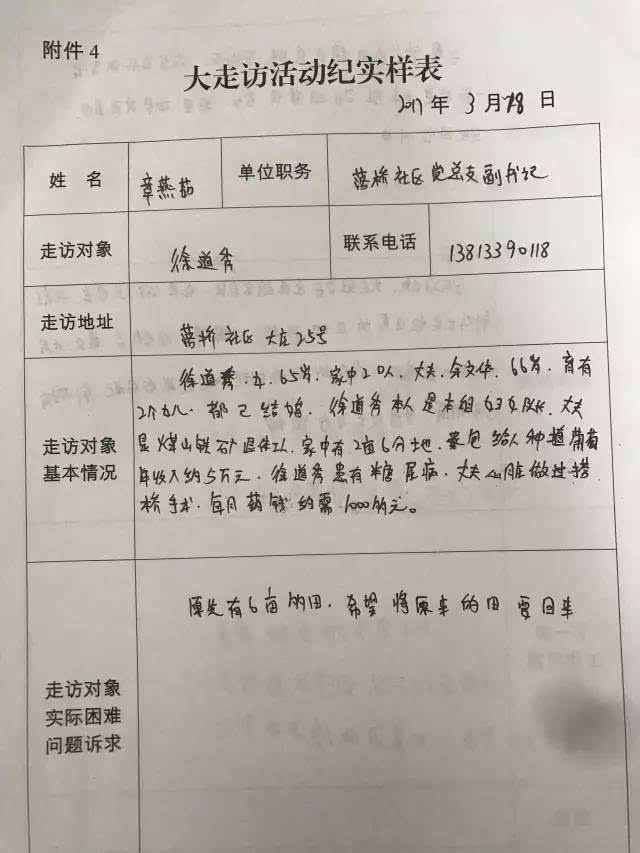 附件 4
大走访活动纪实样表
2017 年 3 月 28 日
姓 名 章燕茹 单位职务 蒋桥社区党总支副书记
走访对象 徐道秀 联系电话 13813390118
走访地址 蒋桥社区 大庄25号
走访对象
基本情况
徐道秀，女，65岁，家中2口人，丈夫，余文体，66岁，育有
2个女儿，都已结婚，徐道秀本人是本组妇女队长，丈夫
是煤山铁矿退休工人，家中有2亩6分地，承包给人种植葡萄
年收入约5万元，徐道秀患有糖尿病，丈夫心脏做过搭
桥手术，每月药钱约需1000多元。
走访对象
实际困难
问题诉求
原先有6亩多田，希望将原来的田要回来